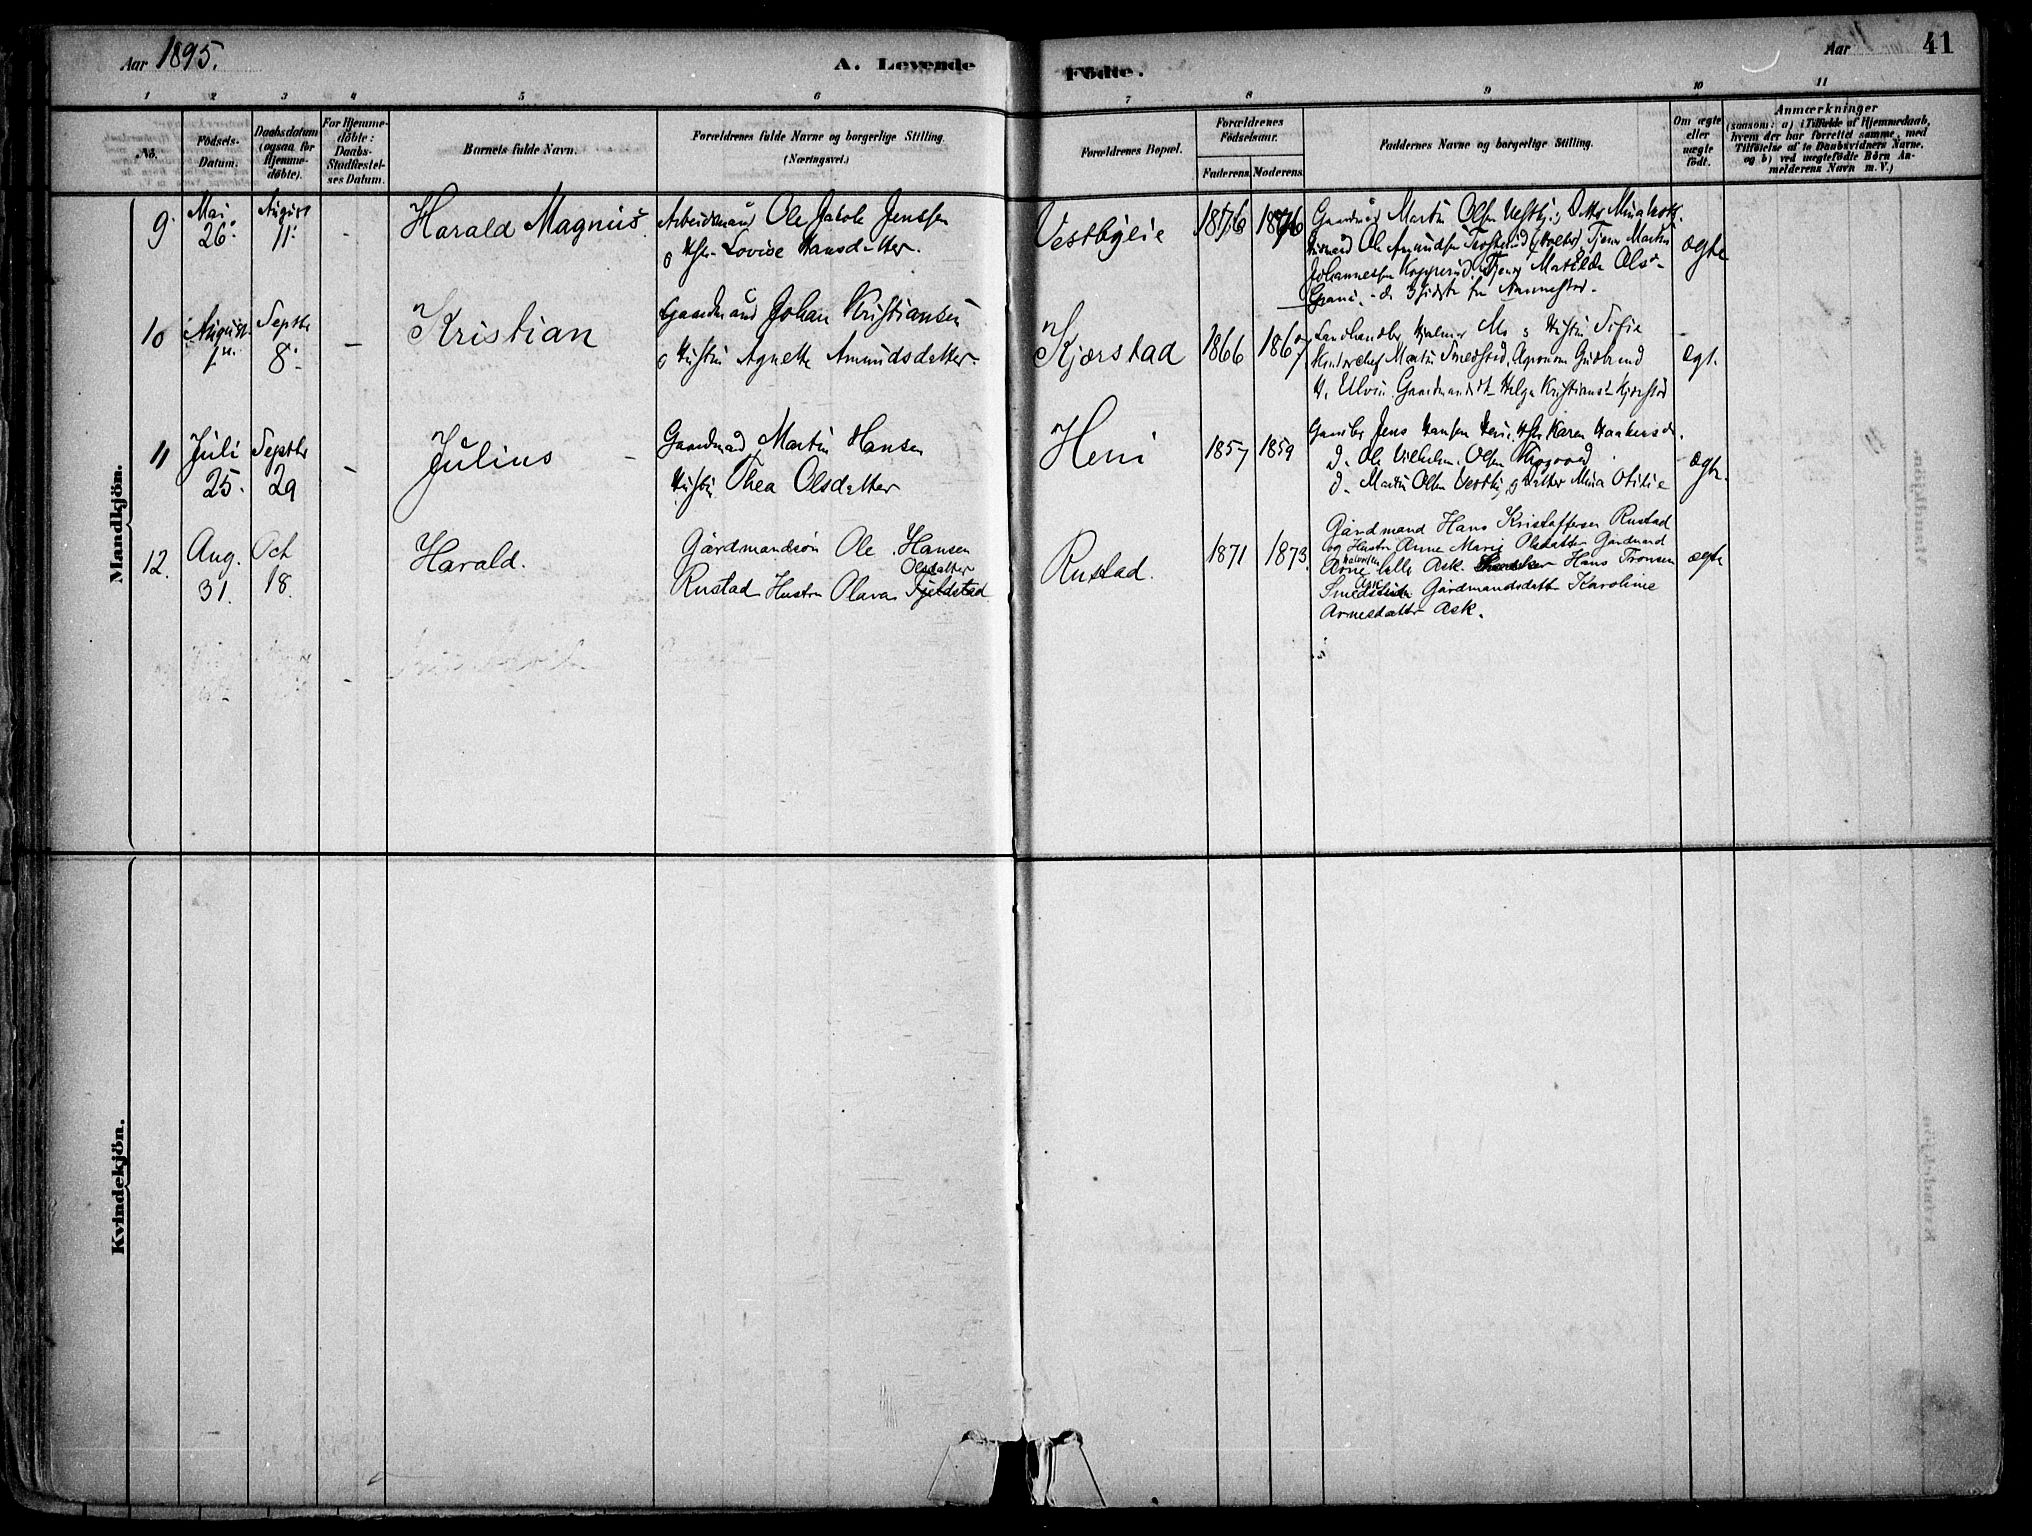 Aar 1895.
A. Levende
Födte.
Aar
41
1 2 3 4 5 6 7 8 9 10 11
No.
Födsels-
Datum.
Daabsdatum
(ogsaa for
Hjemme-
döbte).
For Hjemme-
döbte:
Daabs-
Stadfæstel-
ses Datum.
Barnets fulde Navn.
Forældrenes fulde Navne og borgerlige Stilling.
(Næringsvei.)
Forældrenes Bopæl.
Forældrenes
Födselsaar.
Faderens. Moderens.
Faddernes Navne og borgerlige Stilling.
Om ægte
eller
uægte
født.
Anmærkninger
(saasom: a) i Tilfælde af Hjemmedaab,
hvem der har forrettet samme, med
Tilföielse af to Daabsvidners Navne,
og b) ved uægtefödte Börn An-
melderens Navn m.V.)
Mandkjön.
9.
Mai
26.
August
11.
-
Harald Magnus.
Arbeidsmand Ole Jakob Jenssen
o Hstr. Lovise Hansdatter.
Vestbyeie
1876
1876
Gaardmd Martin Olsen Vestby,
Ole Amundsen Tjener Martin
Johannessen Kopperud, Tjeng Matilde Ols-
ægte
10
August
Septbr
8.
-
Kristian
Gaardmand Johan Kristiansen
o Hustru Agnethe Amundsdatter.
Kjærstad
1866
1867
Landhandler Hjalmar Mo o Hustru Sofie
Martin Smedstad, Agronom Gudbrand
H. Ulvin, Helga Kristians- Kjærstad
ægt.
11
Juli
25.
Septbr
29
-
Julius
Gaardmd Martin Hansen
Hustru Thea Olsdatter
Heni
1857
1859
Gaardbr Jens Hansen Heni, Hstr Karen Haakensd.
D. Ole Vilhelm Olsen
D. Martin Olsen Vestby, o Datter Mina Otilie
ægte.
12.
Aug.
31.
Oct
18.
Harald.
Gårdmandsön Ole Hansen
Olsdatter
Rustad Hustru Olava Fjeldstad
Rustad.
1871
1873.
Gårdmand Hans Kristoffersen Rustad
og Hustru Anne Marie Olsdatter Gårdmand
Halvorsen
Arne lille Ask. Hans Tronsen
Ask
Gårdmandsdatter Karoline
Arnesdatter Ask.
ægte
Kvindekjön.